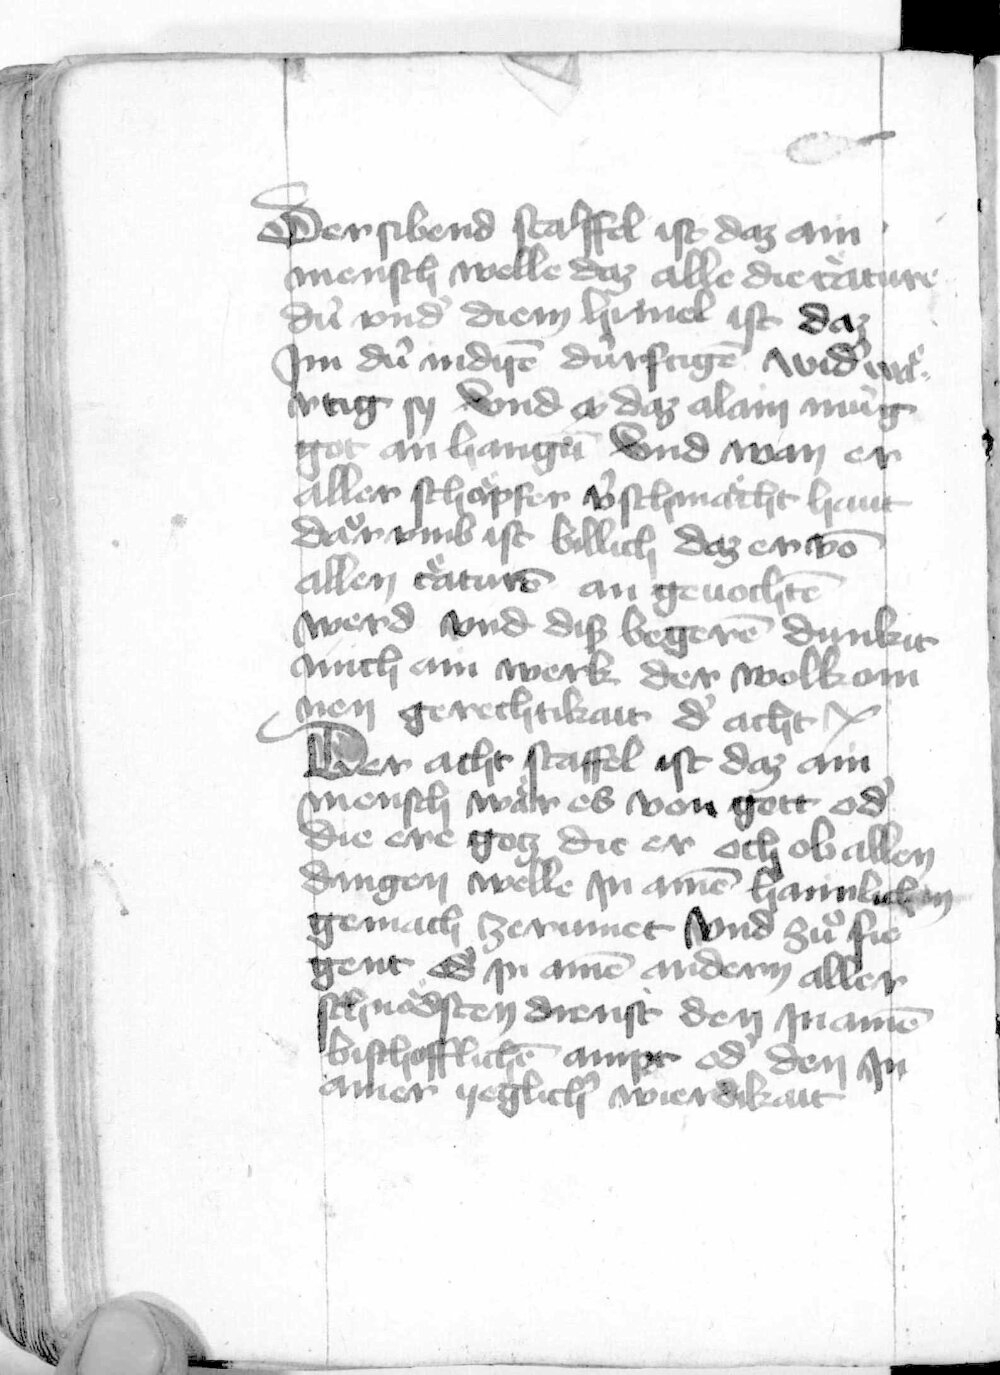 Der sibend staffel ist daz ain
mensch welle daz alle die cͣature
dú vnd' diem himel ist daz
Jm dú indiſē dúrftigē wid'wͣa
rtig sy Vnd er daz alain múg
got an hangē Vnd wan er
aller schoͤpfer v'schmaͤcht haut
daͮrumb ist billich daz er vō
allen cͣaturē an geuochtē
werd vnd diß begerē dunkit
mich ain werk der wolkom
nen gerechtikait d' acht
Der acht staffel ist daz ain
mensch waͤr es von gott od'
die ere gotz die er och ob allen
dingen welle in ainē haimlichen
gemach zerumet Vnd zuͦ fie
gent od' jn ainē andern aller
schnoͤdsten dienst den jn ainē
bischofflichē ampt od' den jn
ainer yeglich' wierdikait